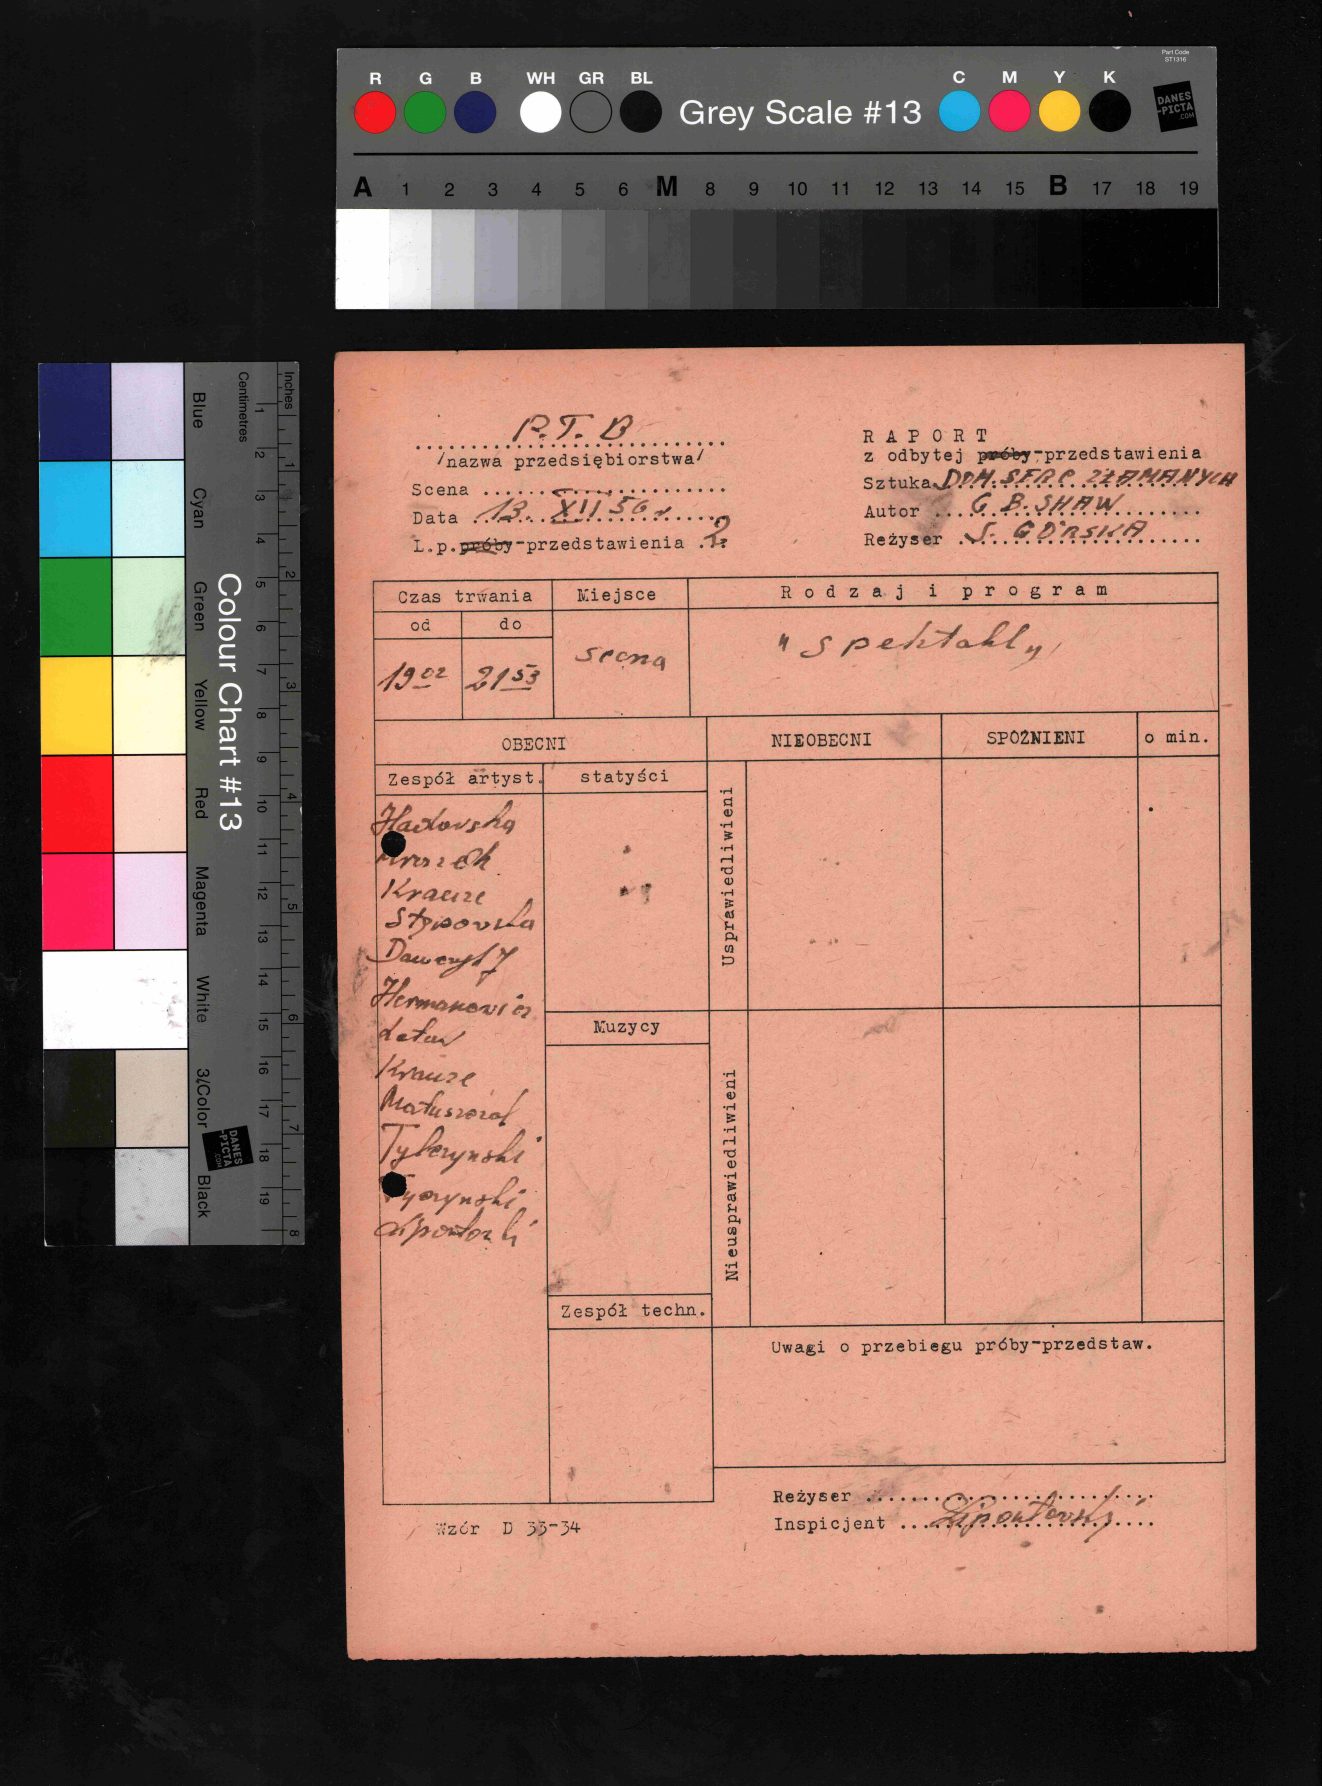 Part Code
ST1316
R G B WH GR BL Grey Scale #13 C M Y K
DANES
-PICTA
.COM
A 1 2 3 4 5 6 M 8 9 10 11 12 13 14 15 B 17 18 19
Colour Chart #13
Blue Cyan Green Yellow Red Magenta White 3/Color Black
Centimetres 1 2 3 4 5 6 7 8 9 10 11 12 13 14 15 16 17 18 19
Inches 1 2 3 4 5 6 7 8
DANES
-PICTA
.COM
P.T.B
/nazwa przedsiębiorstwa/
Scena
Data 13. XII 56 r
L.p. próby-przedstawienia 2
RAPORT
z odbytej próby-przedstawienia
Sztuka DOM SERC ZŁAMANYCH
Autor G. B. SHAW
Reżyser S. GÓRSKA
Czas trwania Miejsce Rodzaj i program
od do
19 02 21 53 scena "spektakl"
OBECNI NIEOBECNI SPÓŹNIENI o min.
Zespół artyst. statyści
Usprawiedliwieni
Mrozek
Krauze
Stępowska
Hermanowicz
Krauze
Matuszczak
Tylczyński
Tyczyński
Lipowłocki
Muzycy
Nieusprawiedliwieni
Zespół techn.
Uwagi o przebiegu próby-przedstaw.
Reżyser
Inspicjent
Wzór D 33-34